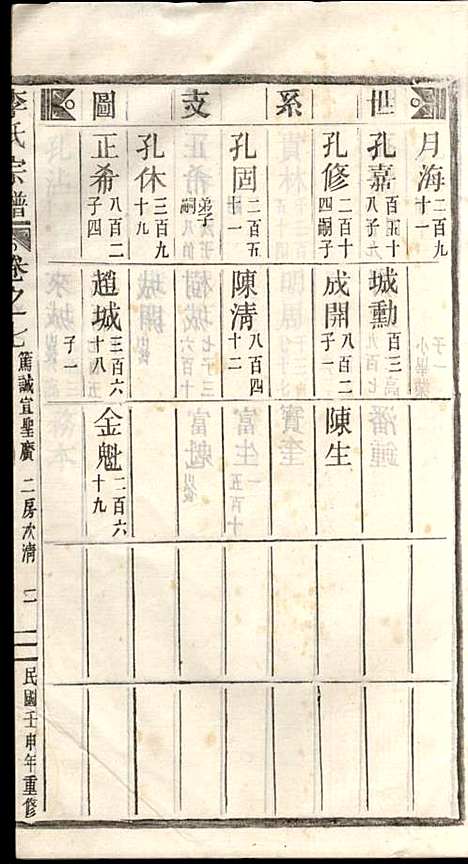 世系支圖
月海 二百九十一
孔嘉 百五十八 子九
孔修 二百十四 嗣子
孔固 二百五十一
弟子嗣
孔休 三百九十九
正希 八百二 子四
城勳 百三
成開 八百二 子一
陳清 八百四十二
趙城 三百六十八 子一
陳生
金魁 二百六十九
李氏宗譜
卷之十七 篤誠宜聖廣 二房次清 二
民國壬申年重修